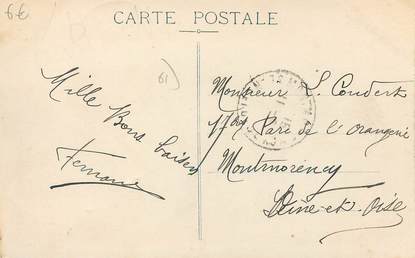 6€
CARTE POSTALE
61
Mille Bons baisers
Fernand
Monsieur L. Coudert
17 Parc de l'orangerie
Montmorency
Seine-et-Oise